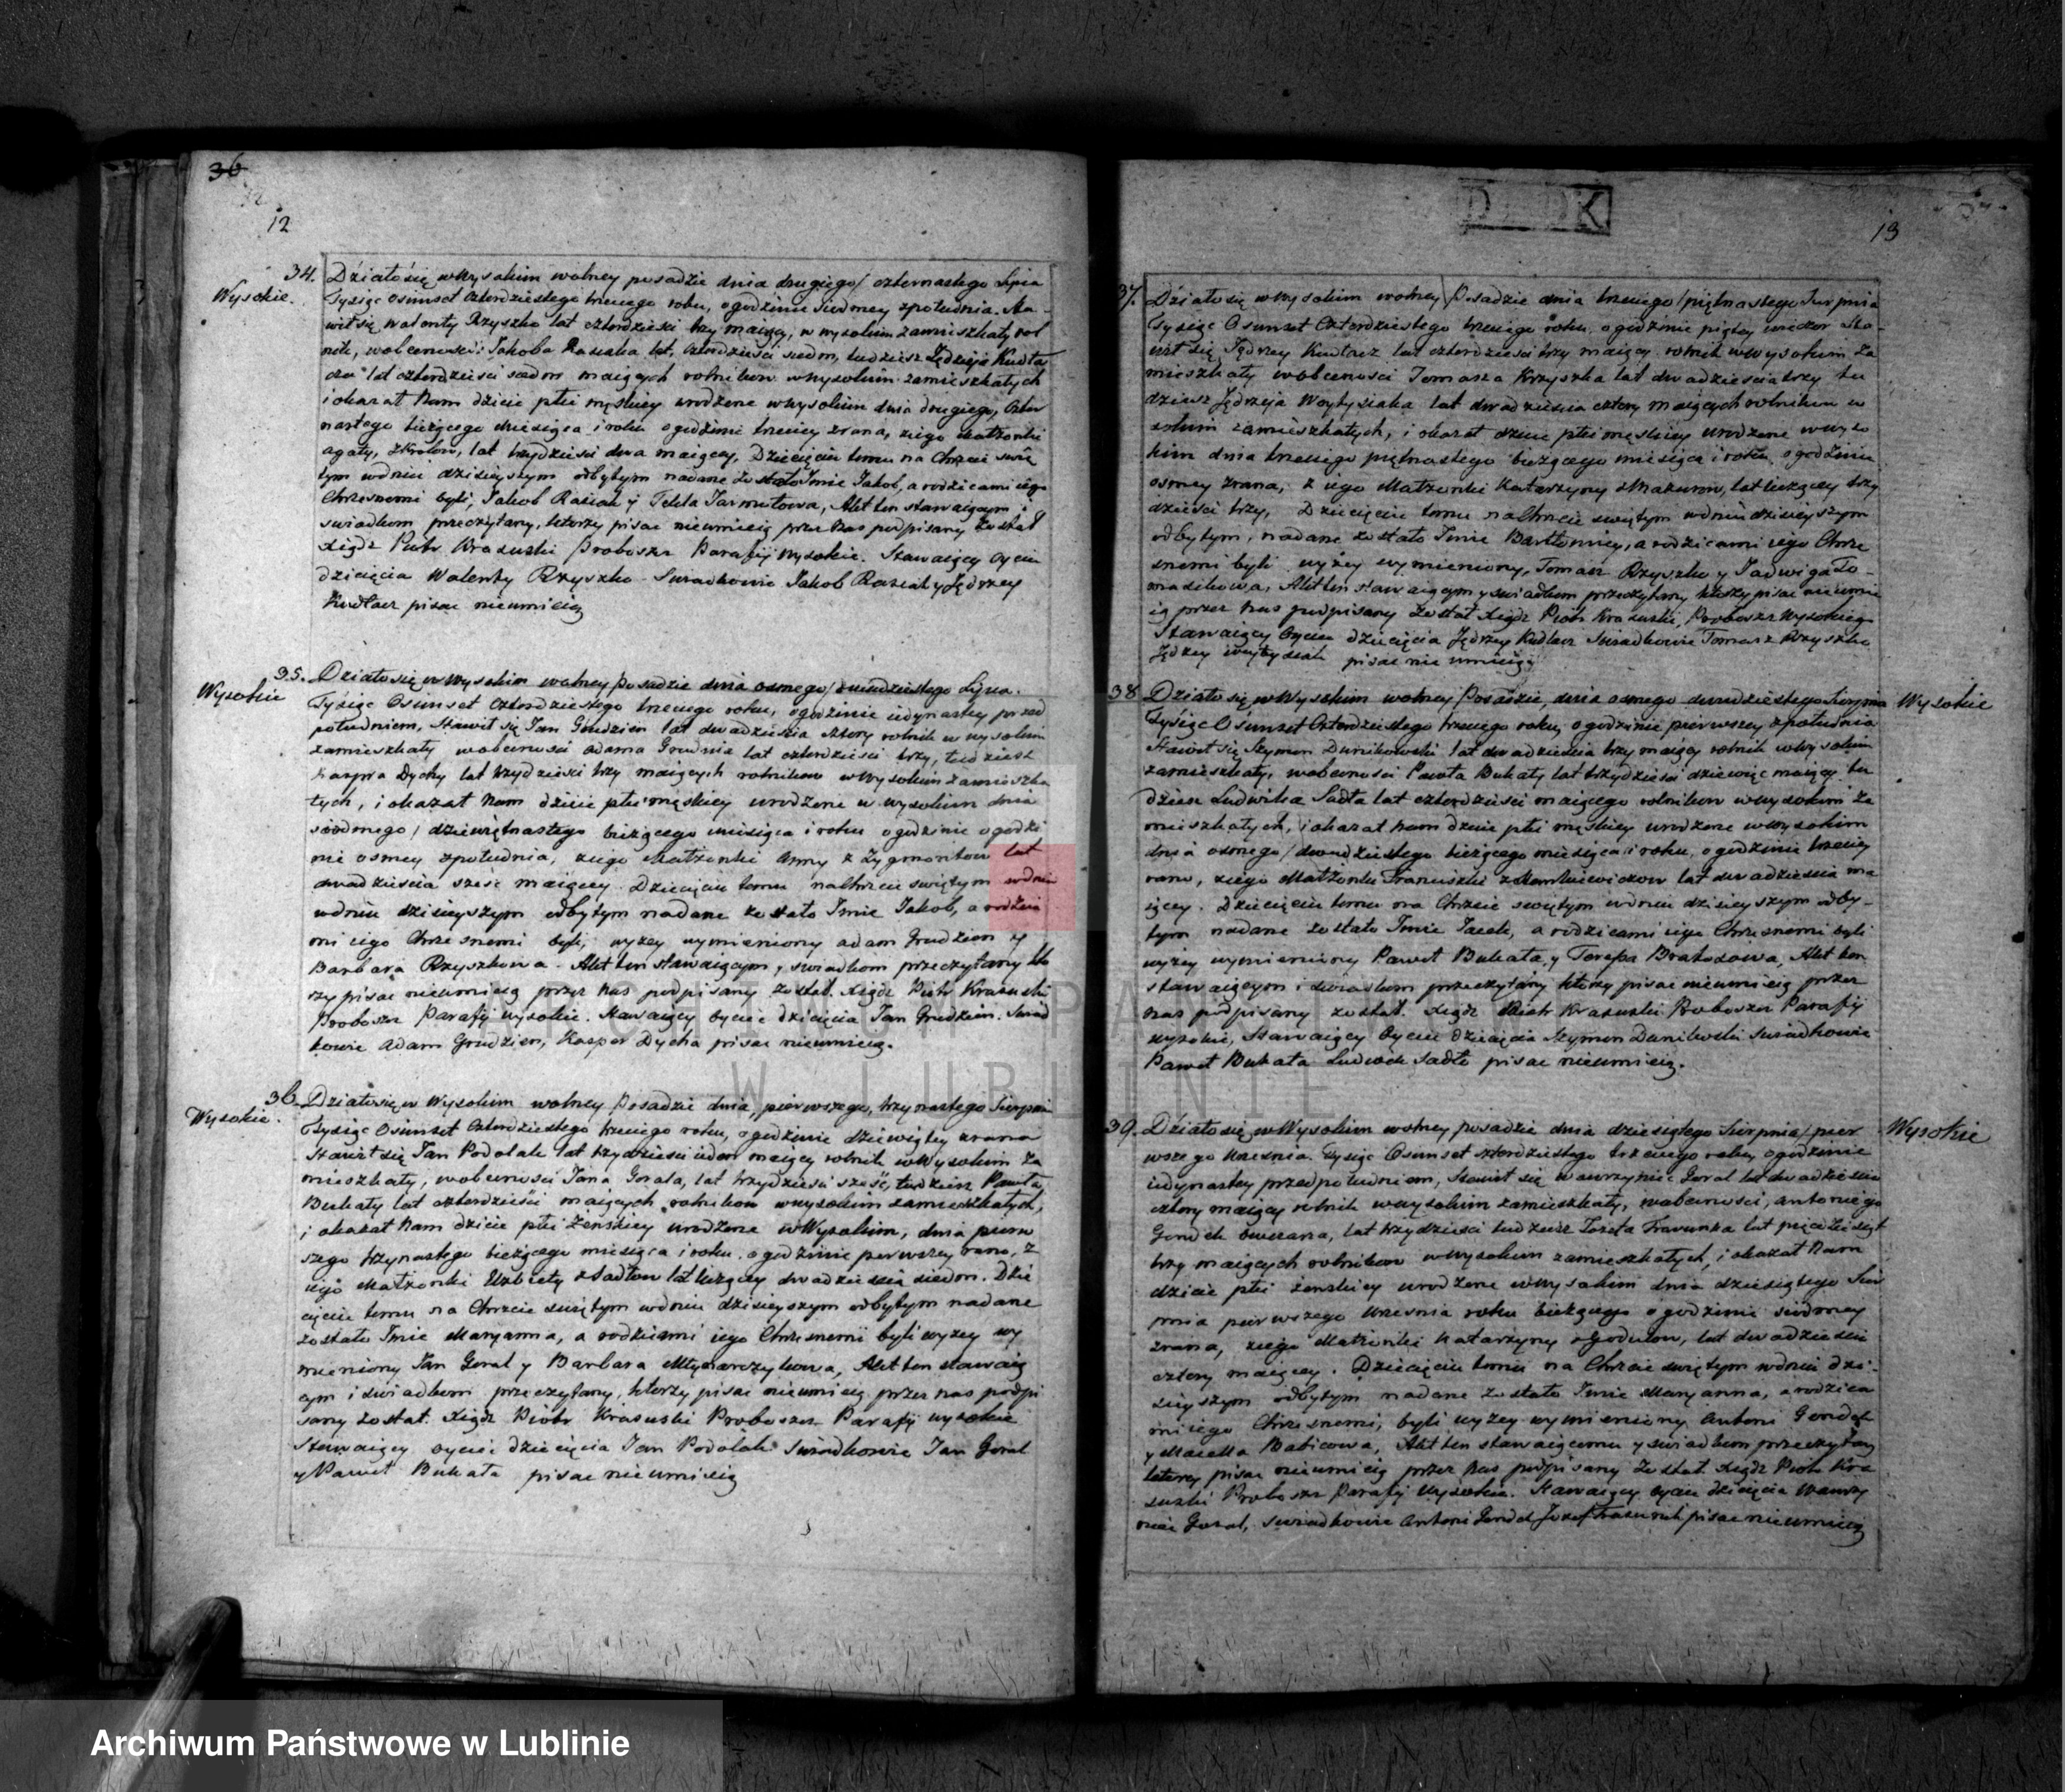 36
12
34.
Wysokie.
Działo się w Wysokim wolney posadzie dnia drugiego/ czternastego Lipca
Tysiąc Osimset Czterdziestego trzeciego roku, o godzinie siodmey z południa. Sta-
wił się Walenty Rzyszko lat czterdzieści trzy maiący, w wysokim zamieszkały rol
nik, w obecności Jakoba Rasiaka lat, czterdzieści siedm, tudzież Jędrzeja Kudła
cza lat czterdzieści siedm maiących rolnikow w wysokim zamieszkałych
i okazał Nam dziecie płci męskiey urodzone w wysokim dnia drugiego, czter
nastego bieżącego miesiąca i roku o godzinie trzeciey zrana, z iego Małżonki
Agaty, z Krolow, lat trzydzieści dwa maiącey, Dziecięciu temu na Chrzcie świę
tym w dniu dzisieyszym odbytym nadane zostało Imie Jakob, a rodzicami iego
Chrzesnemi byli, Jakob Rasiak y Tekla Jarmutowa, Akt ten stawaiącym i
swiadkom przeczytany, ktorzy pisac nieumieią przez Nas podpisany został
Xiądz Piotr Krasuski Proboszcz Parafij Wysokie. Stawaiący oyciec
dziecięcia Walenty Rzyszko Swiadkowie Jakob Rasiak y Jędrzey
Kudłacz pisac nieumieią
35.
Wysokie
Działo się w Wysokim wolney Posadzie dnia osmego/ dwudziestego Lipca.
Tysiąc Osimset Czterdziestego trzeciego roku, o godzinie iedynastey przed
południem, Stawił się Jan Grudzien lat dwadzieścia cztery rolnik w wysokim
zamieszkały w obecności Adama Grudnia lat czterdzieści trzy, tudzież
Kaspra Dychy lat trzydzieści trzy maiących rolnikow w Wysokim zamieszka
łych, i okazał Nam dziecie płci męskiey urodzone w wysokim dnia
siodmego/ dziewiętnastego bieżącego miesiąca i roku o godzinie o godzi
nie osmey z południa, z iego Małżonki Anny z Zygmontow lat
dwadzieścia sześć maiącey. Dziecięciu temu na Chrzcie świętym w dniu
w dniu dzisieyszym odbytym nadane zostało Imie Jakob, a rodzica
mi iego Chrzesnemi byli, wyżey wymieniony Adam Grudzien y
Barbara Rzyszkowa. Akt ten stawaiącym y swiadkom przeczytany kto
rzy pisac nieumieią przez Nas podpisany został. Xiądz Piotr Krasuski
Proboszcz Parafij Wysokie. Stawaiący oyciec dziecięcia Jan Grudzien. Swiad
kowie Adam Grudzien, Kasper Dycha pisac nieumieią.
36.
Wysokie.
Działo się w Wysokim wolney Posadzie dnia, pierwszego, trzynastego Sierpnia
Tysiąc Osimset Czterdziestego trzeciego roku, o godzinie dziewiątey zrana
Stawił się Jan Podolak lat trzydzieści ieden maiący rolnik w Wysokim za
mieszkały, w obecności Jana Gorala, lat trzydzieści sześć, tudzież Pawła
Bukaty lat czterdzieści maiących rolnikow w wysokim zamieszkałych,
i okazał Nam dziecie płci Żenskiey urodzone w Wysokim, dnia pierw
szego trzynastego bieżącego miesiąca i roku o godzinie pierwszey rano, z
iego Małżonki Elzbiety z Sadłow lat liczącey dwadzieścia siedm. Dzie
cięciu temu na Chrzcie świętym w dniu dzisieyszym odbytym nadane
zostało Imie Maryanna, a rodzicami iego Chrzesnemi byli wyżey wy
mieniony Jan Goral y Barbara Młynarczykowa, Akt ten stawaią
cym i swiadkom przeczytany, ktorzy pisac nieumieią przez nas podpi
sany został. Xiądz Piotr Krasuski Proboszcz Parafij wysokie
Stawaiący oyciec dziecięcia Jan Podolak Swiadkowie Jan Goral
y Paweł Bukata pisac nieumieią
13
37.
Działo się w Wysokim wolney Posadzie dnia trzeciego/ piętnastego Sierpnia
Tysiąc Osimset Czterdziestego trzeciego roku, o godzinie piątey wieczor Sta-
wił się Jędrzey Kudłacz lat czterdzieści trzy maiący rolnik w wysokim za
mieszkały w obecności Tomasza Krzyszka lat dwadzieścia trzy tu
dzież Jędrzeja Woytysiaka lat dwadzieścia cztery maiących rolnikow w
sokim zamieszkałych, i okazał dziecie płci męskiey urodzone w wyso
kim dnia trzeciego piętnastego bieżącego miesiąca i roku, o godzinie
osmey zrana, z iego Małżonki Katarzyny z Mazurow, lat liczącey trzy
dzieści trzy, Dziecięciu temu na Chrzcie świętym w dniu dzisieyszym
odbytym, nadane zostało Imie Bartłomiey, a rodzicami iego Chrze
snemi byli wyżey wymieniony, Tomasz Rzyszko y Jadwiga To-
masikowa, Akt ten stawaiącym y swiadkom przeczytany ktorzy pisac nieumie
ią przez Nas podpisany został Xiądz Piotr Krasuski, Proboszcz Wysokiego
Stawaiący Oyciec dziecięcia Jędrzey Kudłacz Swiadkowie Tomasz Rzyszko
Jędrzey Woytysiak pisac nie umieią
38
Wysokie
Działo się w Wysokim wolney Posadzie, dnia osmego dwudziestego Sierpnia
Tysiąc Osimset Czterdziestego trzeciego roku, o godzinie pierwszey z południa
Stawił się Szymon Dunikowski lat dwadzieścia trzy maiący rolnik w Wysokim
zamieszkały, w obecności Pawła Bukaty lat trzydzieści dziewięć maiący tu
dzież Ludwika Sadła lat czterdzieści maiącego rolnikow w wysokim za
mieszkałych, i okazał Nam dziecie płci męskiey urodzone w Wysokim
dnia osmego/ dwudziestego bieżącego miesiąca i roku, o godzinie trzeciey
rano, z iego Małżonki Franciszki lat dwadzieścia ma
iącey. Dziecięciu temu na Chrzcie swiętym w dniu dzisieyszym odby-
tym nadane zostało Imie Jacek, a rodzicami iego Chrzesnemi byli
wyżey wymieniony Paweł Bukata, y Teressa Bratosowa, Akt ten
stawaiącym i swiadkom przeczytany ktorzy pisac nieumieią przez
nas podpisany został. Xiądz Piotr Krasuski Proboszcz Parafij
wysokie, Stawaiący Oyciec dziecięcia Szymon Dunikowski Swiadkowie
Paweł Bukata Ludwik Sadło pisac nieumieią.
39.
Wysokie
Działo się w Wysokim wolney posadzie dnia dziesiątego Sierpnia/ pier
wszego Wresnia. Tysiąc Osimset czterdziestego trzeciego roku, o godzinie
iedynastey przed południem, Stawił się Wawrzyniec Goral lat dwadzieścia
cztery maiący rolnik w wysokim zamieszkały, w obecności, Antoniego
lat trzydzieści tudzież Jozefa lat pięćdziesiąt
trzy maiących rolnikow w wysokim zamieszkałych, i okazał Nam
dziecie płci żenskiey urodzone w wysokim dnia dziesiątego Sier
pnia pierwszego Wresnia roku bieżącego o godzinie siodmey
zrana, z iego Małżonki Katarzyny z Godulow, lat dwadzieścia
cztery maiącey. Dziecięciu temu na Chrzcie świętym w dniu dzi-
sieyszym odbytym nadane zostało Imie Maryanna, a rodzica
mi iego Chrzesnemi, byli wyżey wymieniony Antoni
y Maryanna Babicowa, Akt ten stawaiącemu y swiadkom przeczytany
ktorzy pisac nieumieią przez Nas podpisany został Xiądz Piotr Kra
suski Proboszcz Parafij Wysokie. Stawaiący oyciec dziecięcia Wawrzy
niec Goral, Swiadkowie Antoni Jozef pisac nieumieią
ARCHIWUM PAŃSTWOWE
W LUBLINIE
Archiwum Państwowe w Lublinie